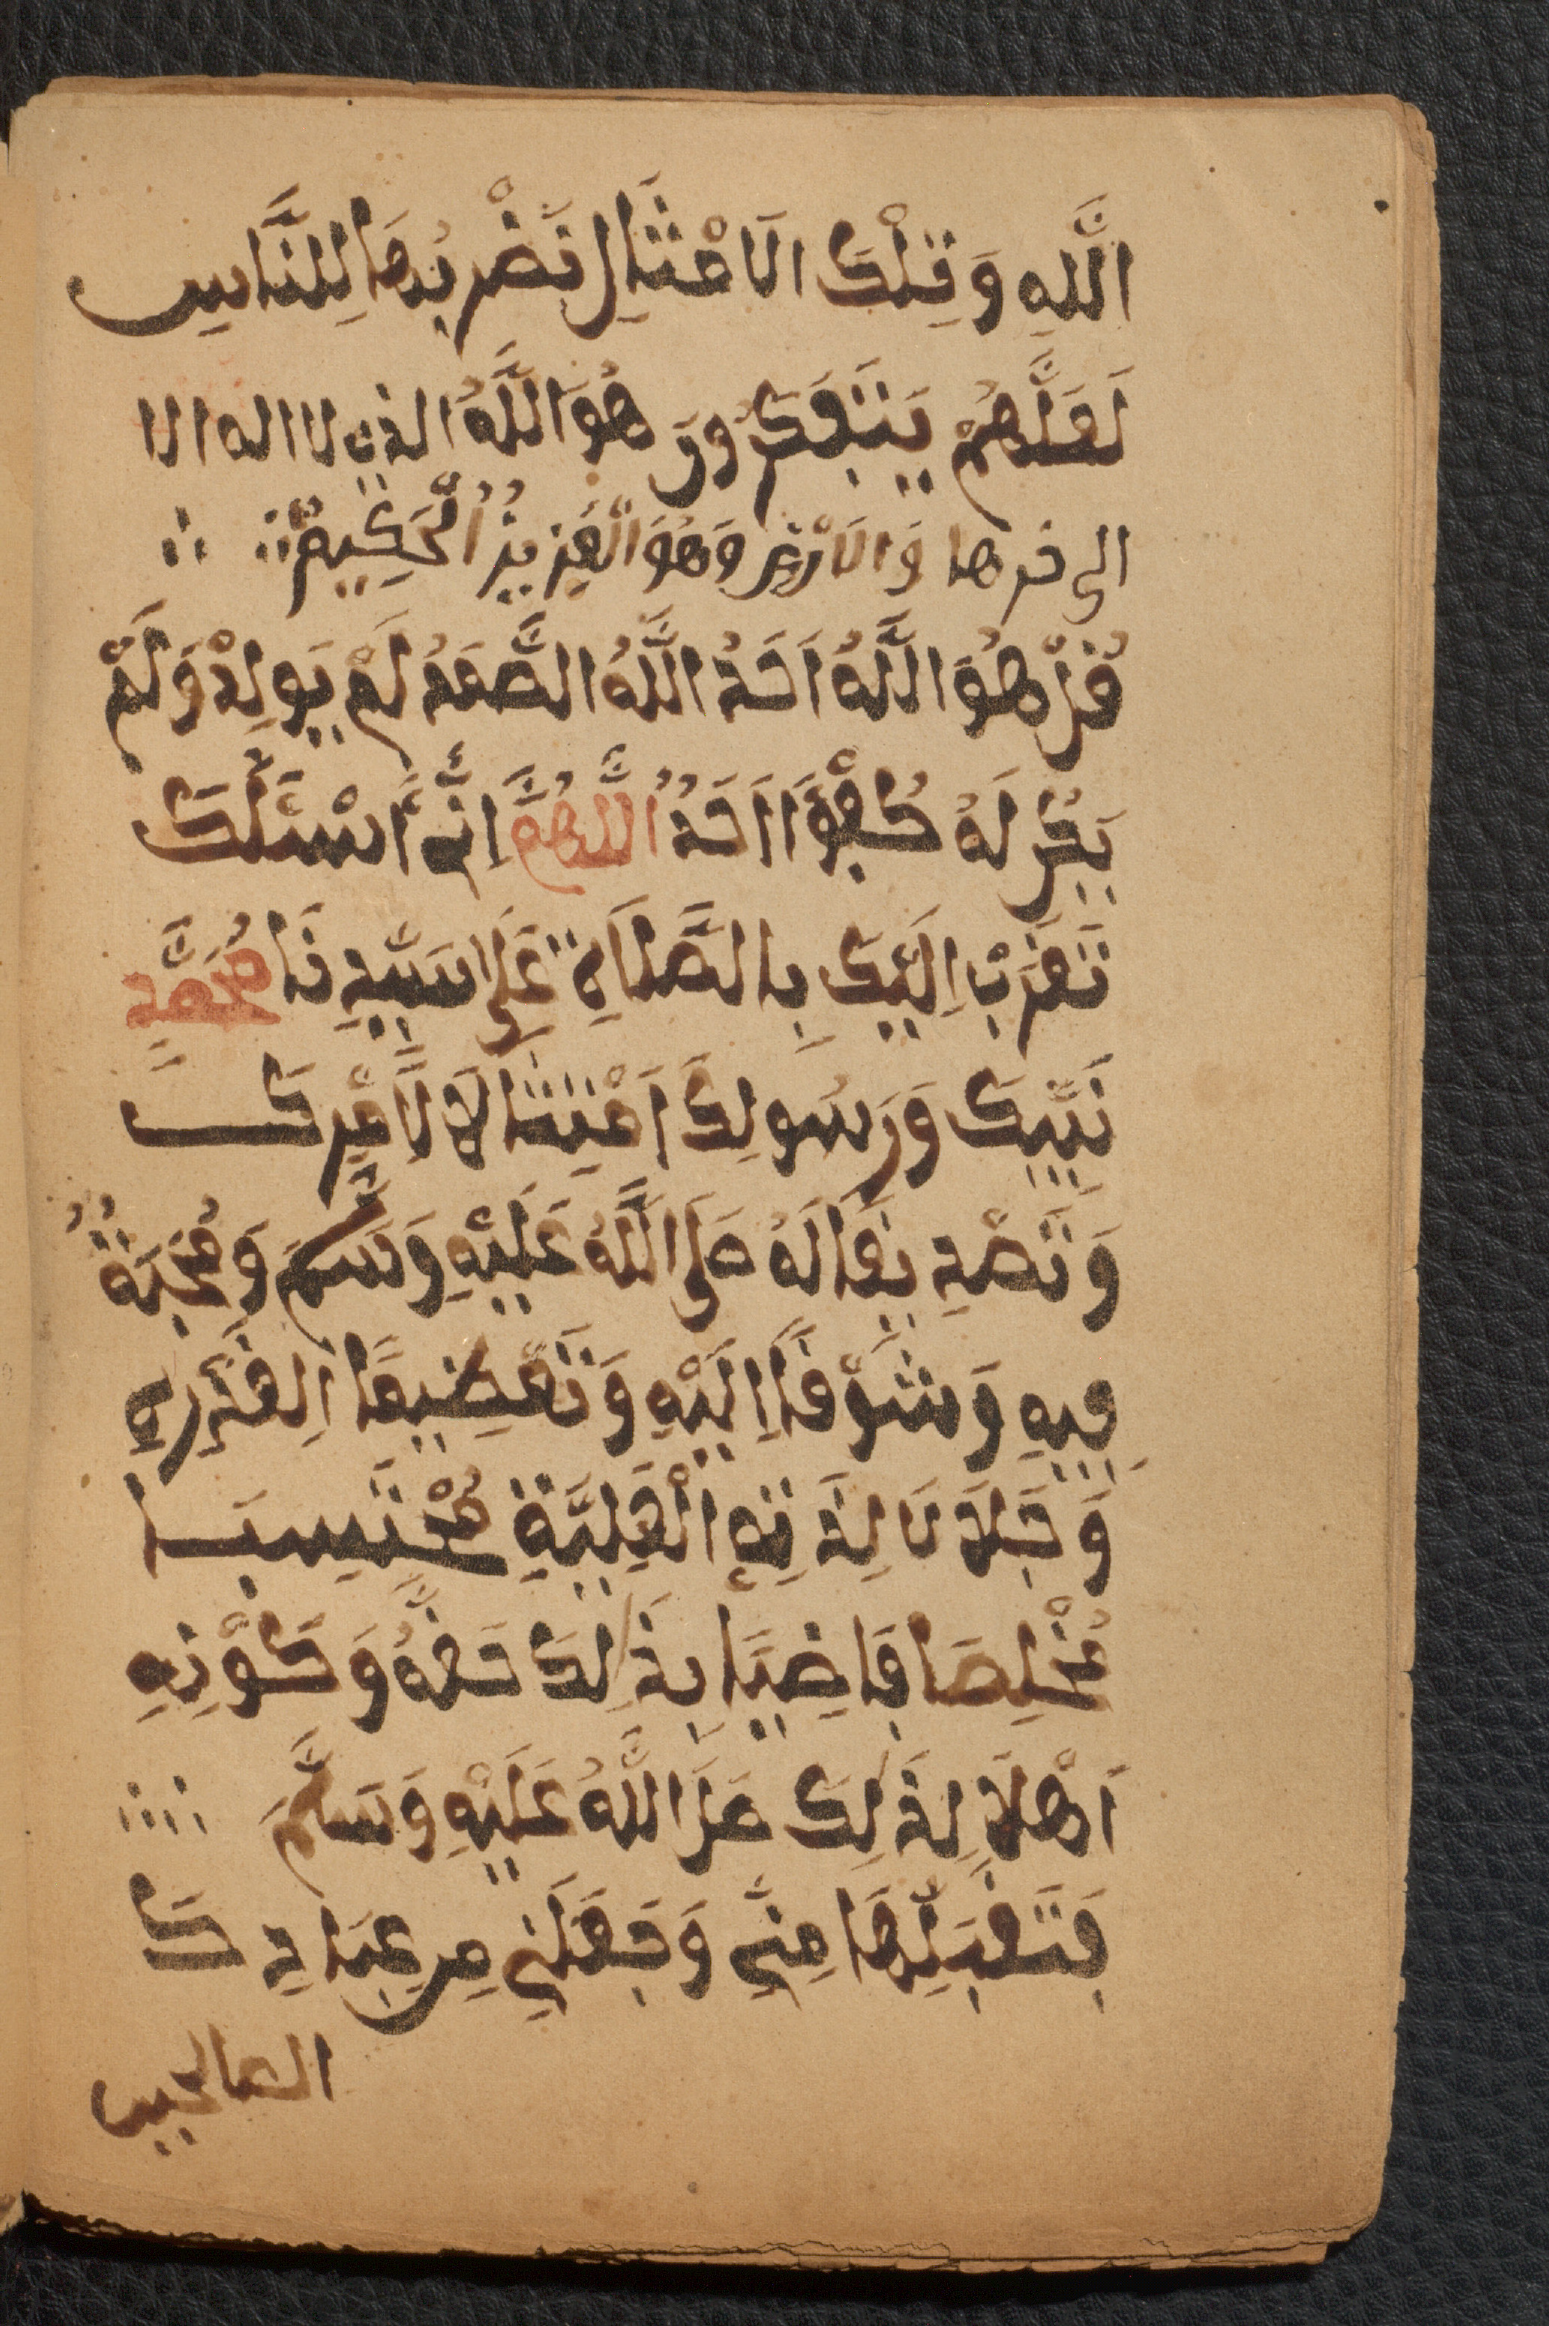 اللَّهِ وَتِلْكَ الَامْثَالِ نَضْرِبُهَا لِلنَّاسِ
لَعَلَّهُمْ يَتَفَكَرُونَ هُوَ اللَّهُ الذي لا اله الا
الى خرها وَالَارْضِ وَهُوَ الْعَزِيزُ الْحَكِيمُ
قُلْ هُوَ اللَّهُ اَحَدُ اللَّهُ الصَّمَدُ لَمْ يَولِدْ وَلَمْ
يَكُن لَهُ كُفْوًا اَحَدٌ اللَّهُمَّ اِنِّي أَسْئَلُكَ
تَقَرْبَ اِلَيكَ بِالصَّلَاةِ عَلَى سَيِّدِنَا مُحَمَّدٍ
نَبِيِّكَ وَرَسُولِكَ اَمْتِثَالًا لِأَمْرِكَ
وَتَصْدِيقَالَهُ صَلى اللَّهُ عَلَيْهِ وَسَلَّمَ وَمُحَبَةٌ
فِيهِ وَشَوْقًا اِلَيْهِ وَتَعْضِيمًا اِلقَدْرِهِ
وَجَلَا نَالِدَتِهِ الْقَلِيَّةِ مُحْتَسِبَا
مُخْلِصَا قَاضِيًا بِذَالِكَ حَقَّهُ وَكَوْنِهِ
اَهْلَا لِذَلِكَ صَلَ اللَّهُ عَلَيْهِ وَسَلَّمَ
فَتَقَبَلْهَا مِنِّي وَجَعَلَنِي مِن عِبَادِكَ
الصالحين